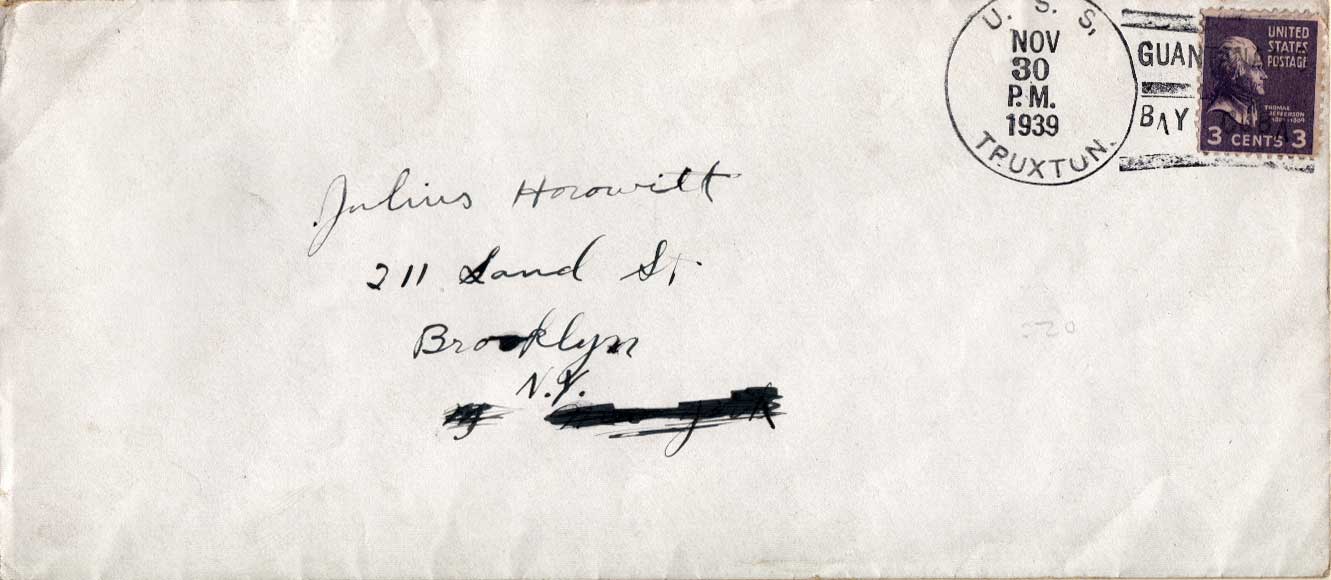 U. S. S.
NOV
30
P.M.
1939
TRUXTUN.
BAY CUBA
UNITED
STATES
POSTAGE
THOMAS
JEFFERSON
3 CENTS 3
Julius Horowitt
211 Sand St.
Brooklyn
N.Y.